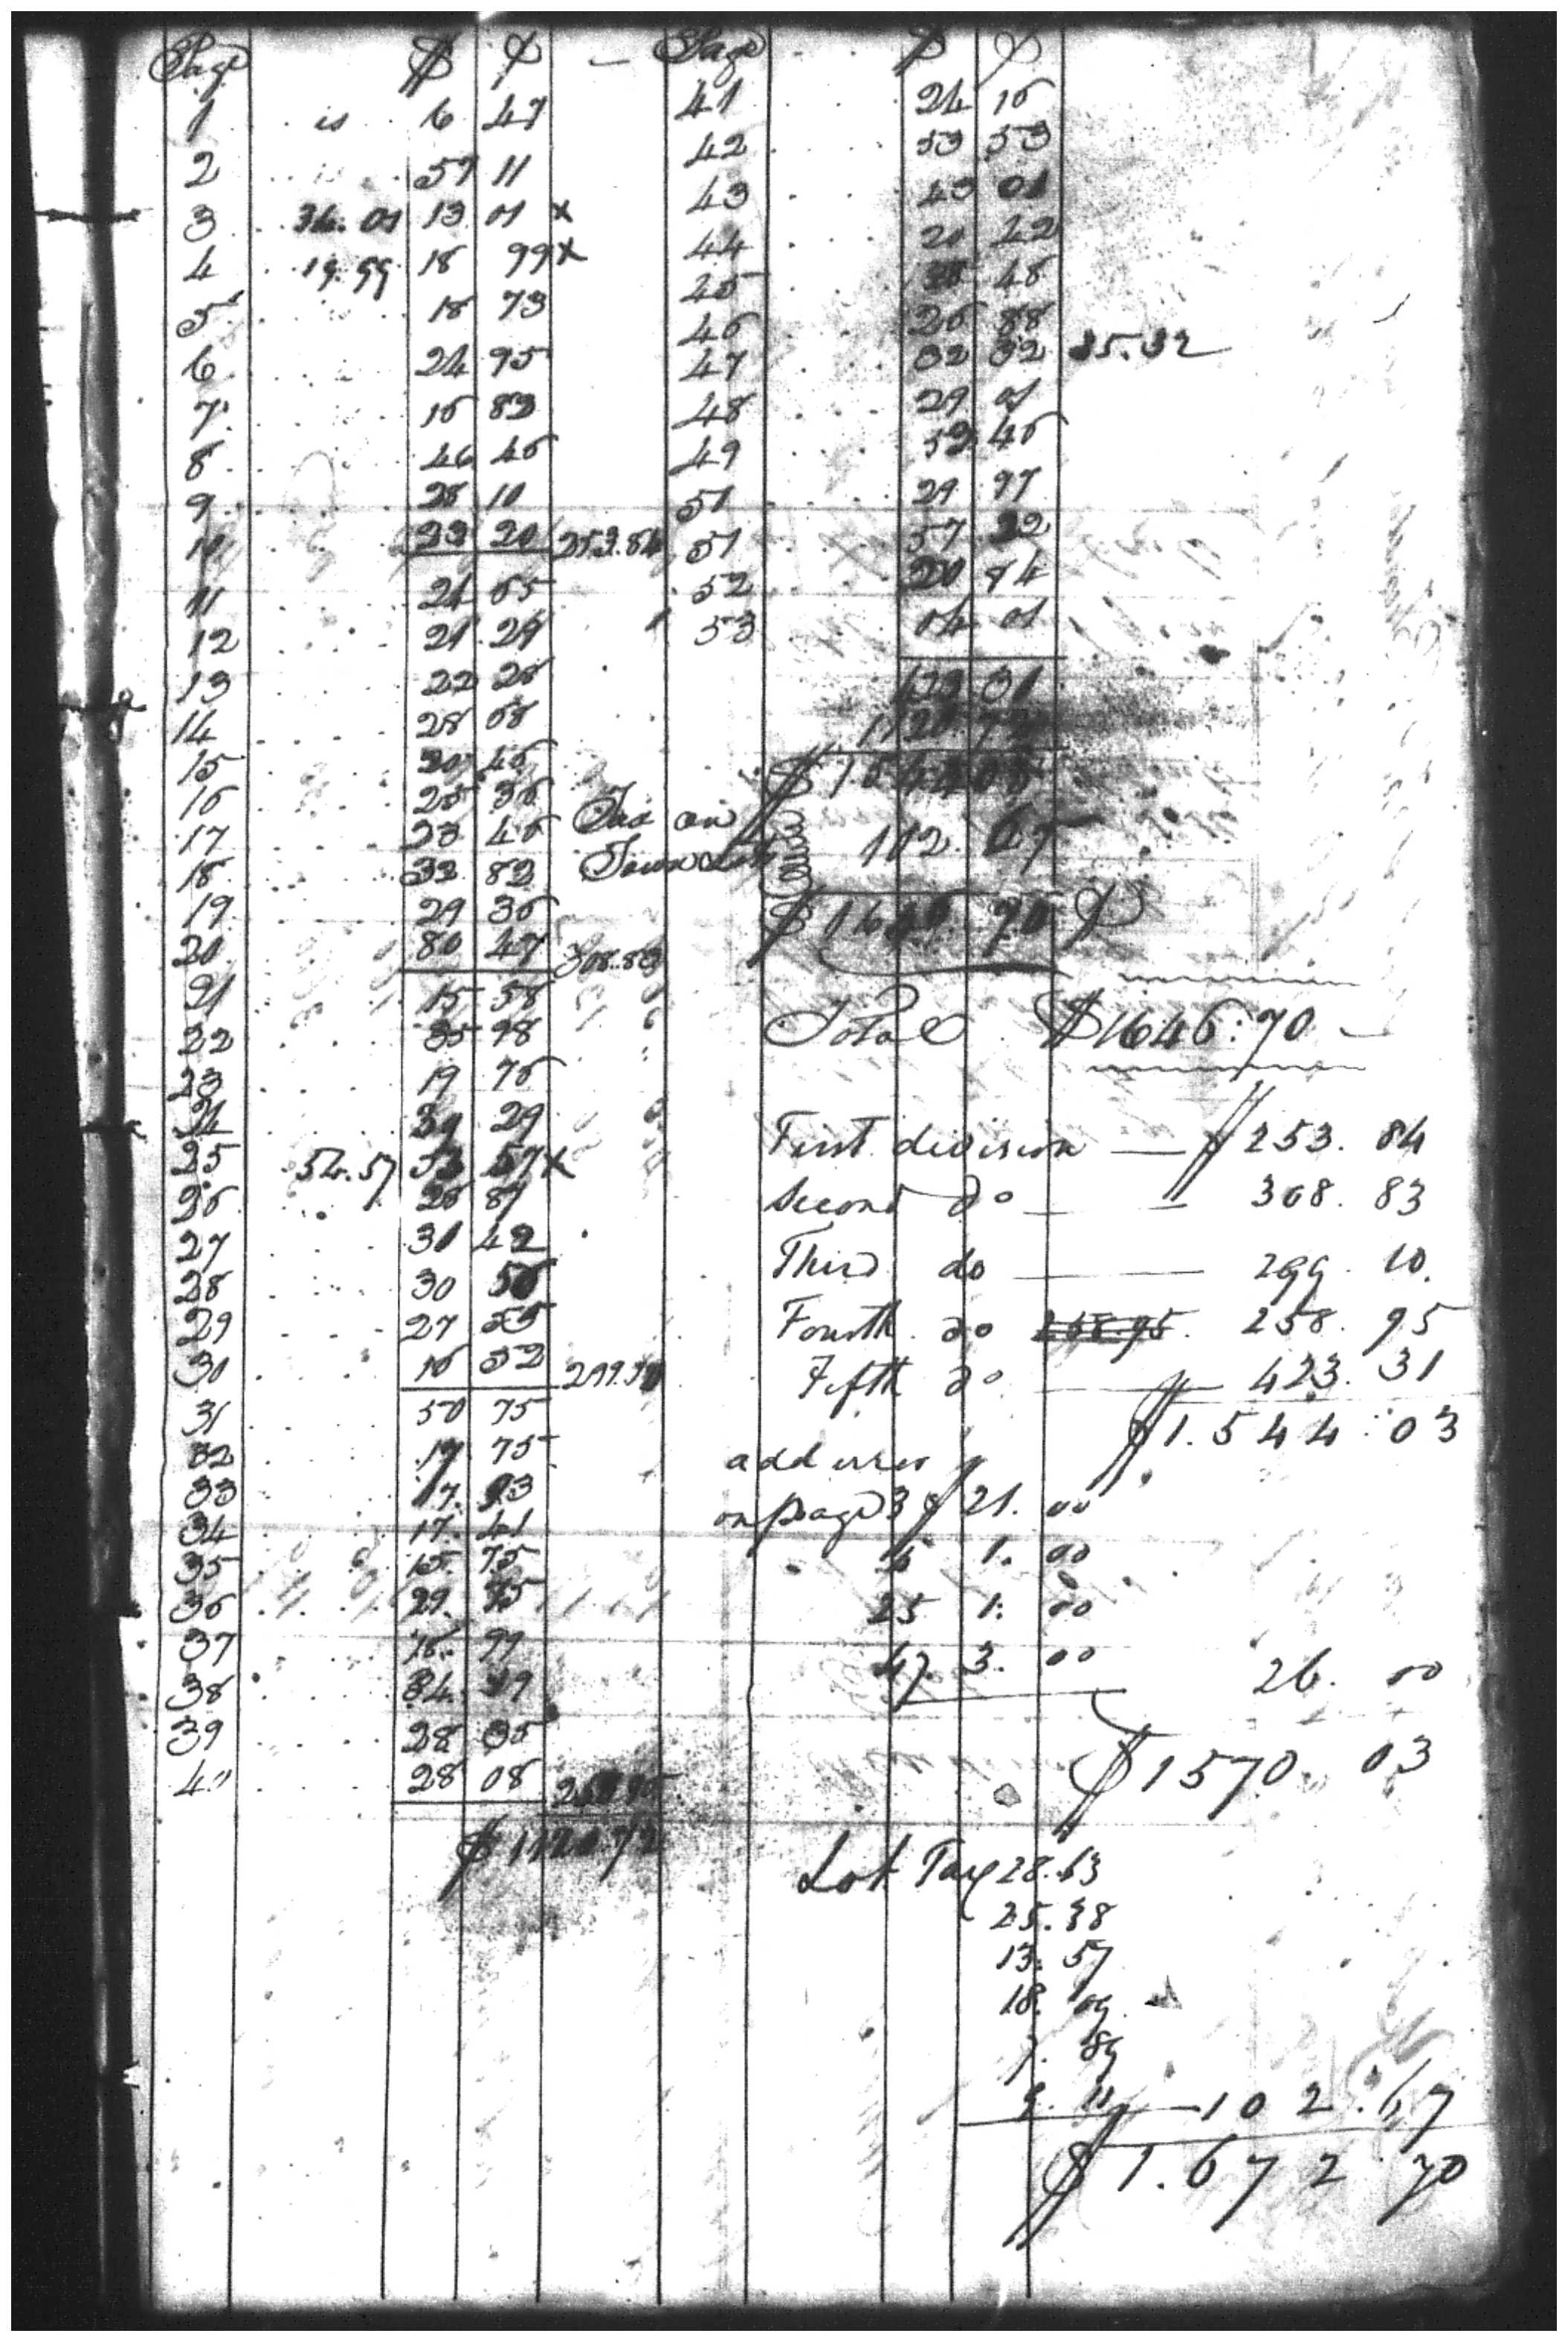 Page $ ¢
1 is 6 47
2 is 57 11
3 34.01 13 01 x
4 19.99 18 99 x
5 18 73
6 24 95
7 16 83
8 46 46
9 28 10
10 23 20 253.84
11 24 65
12 21 29
13 22 28
14 28 68
15 20 46
16 25 36
17 23 46
18 32 82
19 29 36
20 80 47 308.83
21 15 58
22 35 98
23 19 76
24 39 29
25 54.57 53 57 x
26 28 87
27 31 42
28 30 56
29 27 55
30 16 52 299.10
31 50 75
32 19 75
33 17. 93
34 17. 41
35 15. 75
36 29. 75
37 16. 99
38 34. 19
39 28 35
40 28 08 258 95
$ 1120.72
Page $ ¢
41 24 16
42 53 53
43 43 01
44 20 42
45 48
46 26 88
47 32 32 35.32
48 29 01
49 52 46
51 29 97
51 57 22
52 20 84
53 04 01
423 31
1120 72
$ 1544 03
Tax on
Town Lots 102. 67
$ 1646. 70 ¢
Total $1646:70
First division — $ 253. 84
Second do — 308. 83
Third do — 299. 10.
Fourth do 258.95. 258. 95
Fifth do — 423. 31
$1.544:03
add error
on page 3 $ 21. 00
4 1. 00
25 1: 00
47. 3. 00 26. 00
$1570. 03
Lot Tax 28.63
25.38
13. 57
18. 09
7. 89
9. 11 — 102.67
$1.672.70